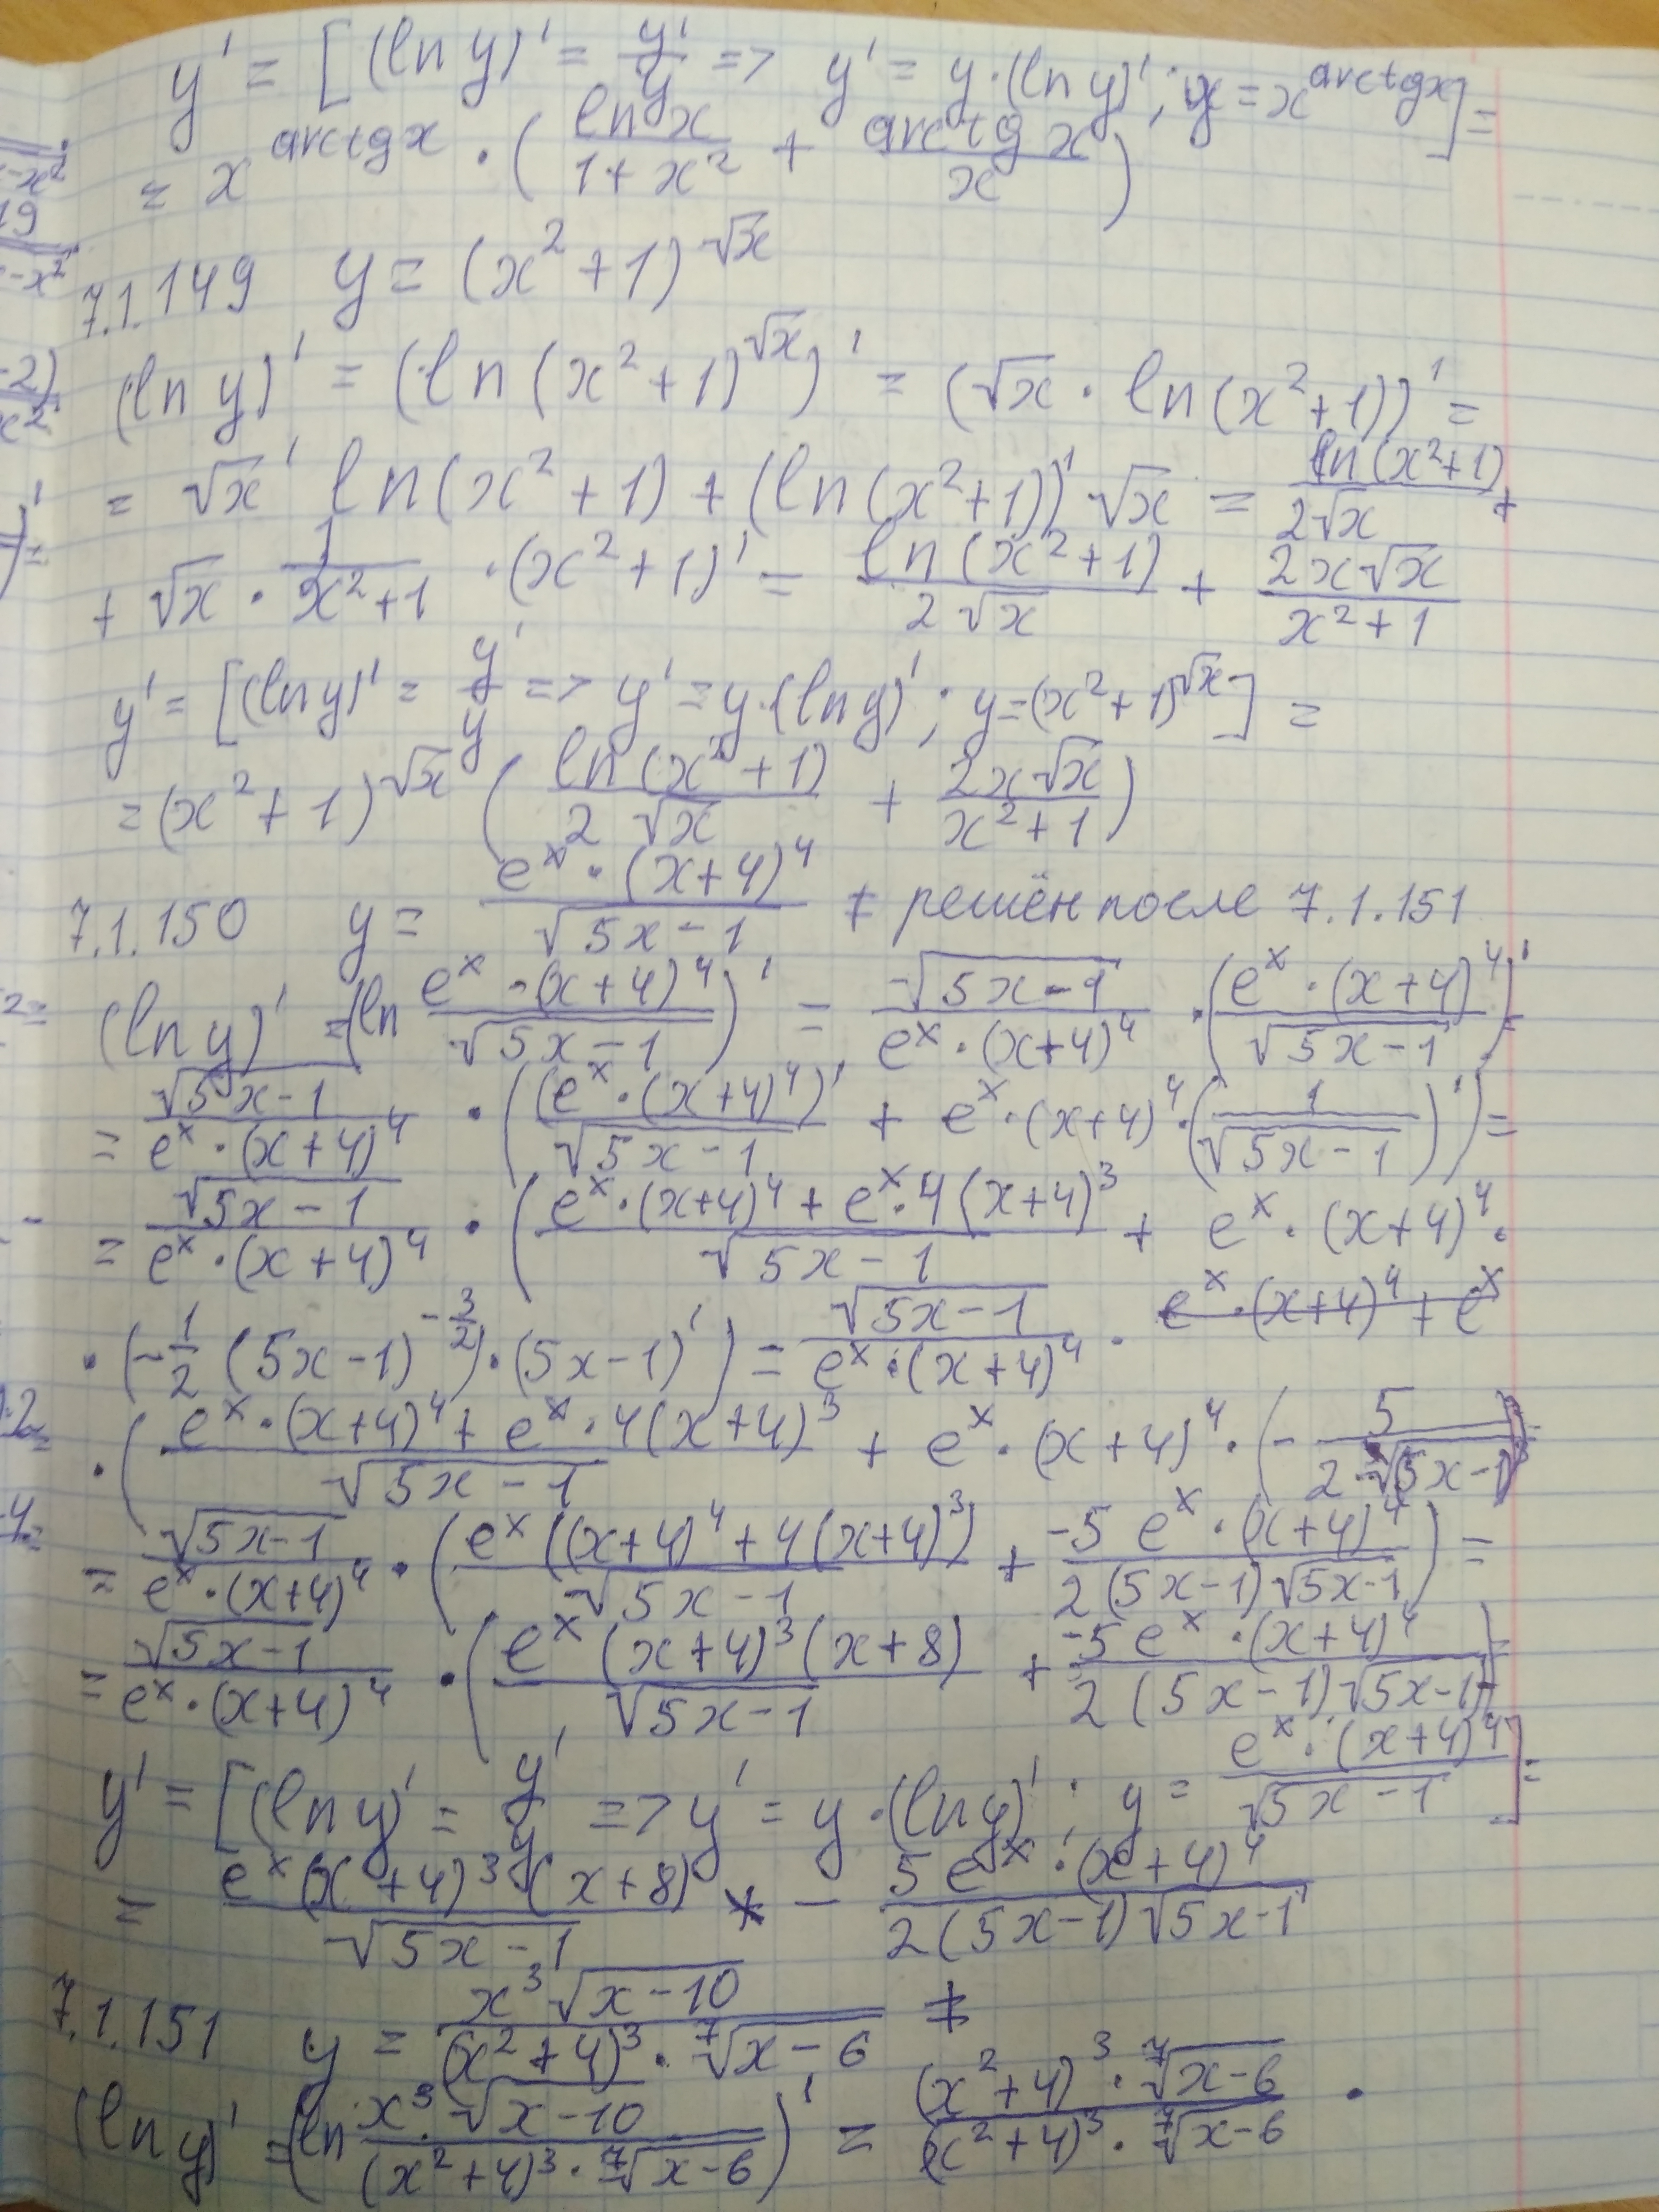 y' = [(ln y)' = y'/y => y' = y·(ln y)'; y = x^(arctg x)] =
= x^(arctg x) · (ln x/(1+x²) + arctg x/x)
7.1.149 y = (x²+1)^√x
(ln y)' = (ln(x²+1)^√x)' = (√x · ln(x²+1))' =
= √x' ln(x²+1) + (ln(x²+1))' √x = ln(x²+1)/(2√x) +
+ √x · 1/(x²+1) · (x²+1)' = ln(x²+1)/(2√x) + 2x√x/(x²+1)
y' = [(ln y)' = y'/y => y' = y·(ln y)'; y = (x²+1)^√x] =
= (x²+1)^√x (ln(x²+1)/(2√x) + 2x√x/(x²+1))
7.1.150 y = e^x·(x+4)⁴/√(5x-1) ≠ решён после 7.1.151
(ln y)' = (ln e^x·(x+4)⁴/√(5x-1))' = √(5x-1)/(e^x·(x+4)⁴) · (e^x·(x+4)⁴/√(5x-1))' =
= √(5x-1)/(e^x·(x+4)⁴) · ((e^x·(x+4)⁴)'/√(5x-1) + e^x·(x+4)⁴·(1/√(5x-1))') =
= √(5x-1)/(e^x·(x+4)⁴) · ((e^x·(x+4)⁴ + e^x·4(x+4)³)/√(5x-1) + e^x·(x+4)⁴·
·(-1/2 (5x-1)^(-3/2))·(5x-1)') = √(5x-1)/(e^x·(x+4)⁴) · e^x·(x+4)⁴ + e^x
·((e^x·(x+4)⁴ + e^x·4(x+4)³)/√(5x-1) + e^x·(x+4)⁴·(-5/(2√(5x-1)³))
= √(5x-1)/(e^x·(x+4)⁴) · (e^x((x+4)⁴ + 4(x+4)³)/√(5x-1) + -5e^x·(x+4)⁴/(2(5x-1)√(5x-1))) =
= √(5x-1)/(e^x·(x+4)⁴) · (e^x(x+4)³(x+8)/√(5x-1) + -5e^x·(x+4)⁴/(2(5x-1)√(5x-1))) =
y' = [(ln y)' = y'/y => y' = y·(ln y)'; y = e^x·(x+4)⁴/√(5x-1)] =
= e^x(x+4)³(x+8)/√(5x-1) - 5e^x·(x+4)⁴/(2(5x-1)√(5x-1))
7.1.151 y = x³√(x-10)/((x²+4)³·⁷√(x-6)) ≠
(ln y)' = (ln x³·√(x-10)/((x²+4)³·⁷√(x-6)))' = (x²+4)³·⁷√(x-6)/((x²+4)³·⁷√(x-6)) ·